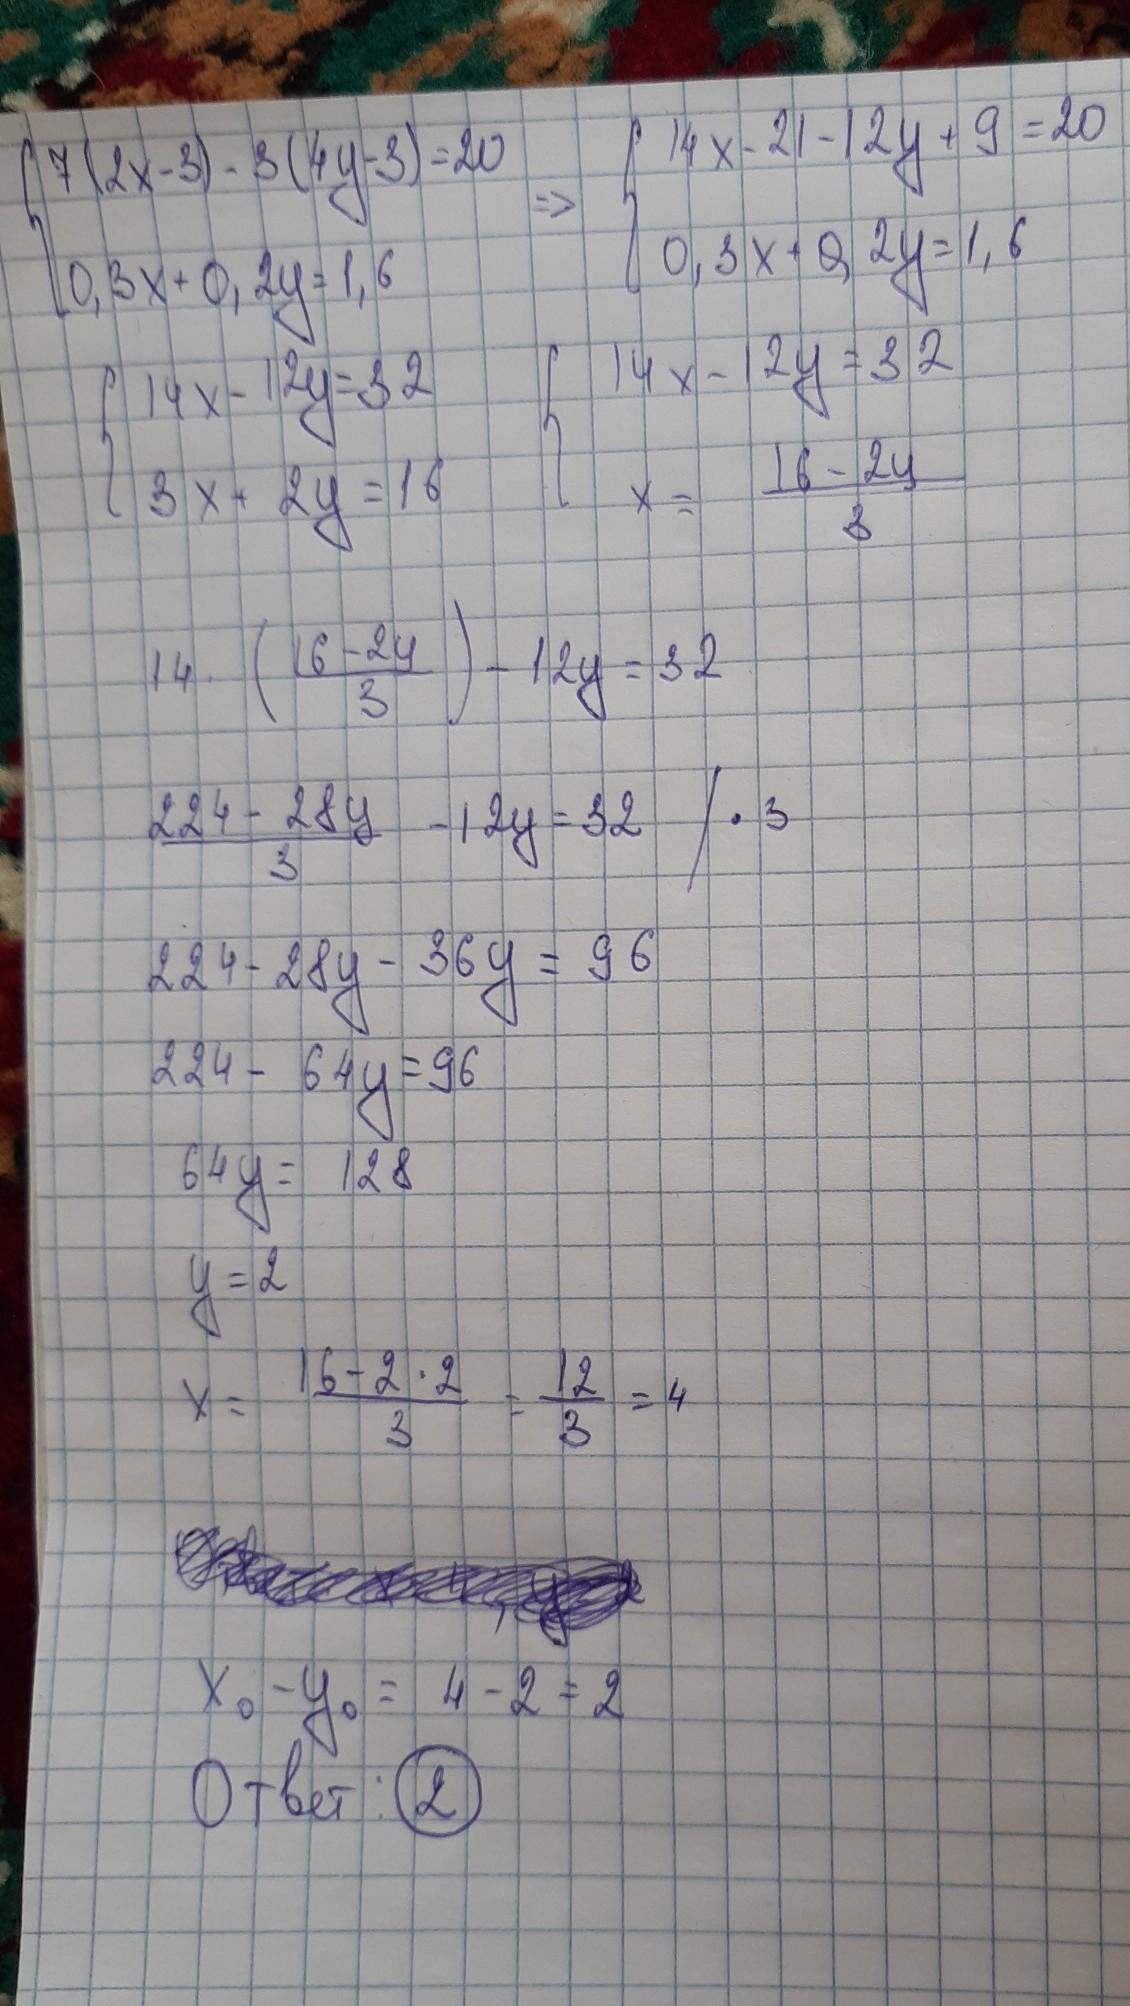 { 7(2x-3) - 3(4y-3) = 20 => { 14x - 21 - 12y + 9 = 20
0,3x + 0,2y = 1,6 0,3x + 0,2y = 1,6
{ 14x - 12y = 32 { 14x - 12y = 32
3x + 2y = 16 x = (16 - 2y)/3
14 · ((16 - 2y)/3) - 12y = 32
(224 - 28y)/3 - 12y = 32 / · 3
224 - 28y - 36y = 96
224 - 64y = 96
64y = 128
y = 2
x = (16 - 2 · 2)/3 = 12/3 = 4
x₀ - y₀ = 4 - 2 = 2
Ответ: 2